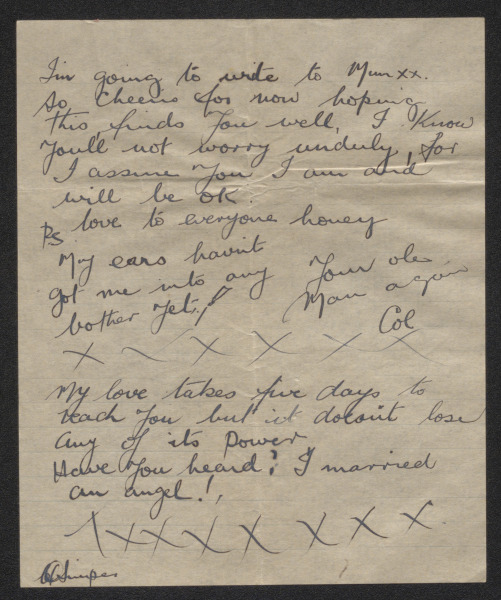 I'm going to write to Mum xx.
So Cheerio for now hoping
this finds You well, I Know
Youll not worry unduly, for
I assure You I am and
will be OK.
Ps love to everyone honey
My ears havint
got me into any
bother Yet.!
Your ole
Man again
Col
X X X X X X
My love takes five days to
reach You but it doesn't lose
any of its Power
Have You heard? I married
an angel!,
XXXXX X X X